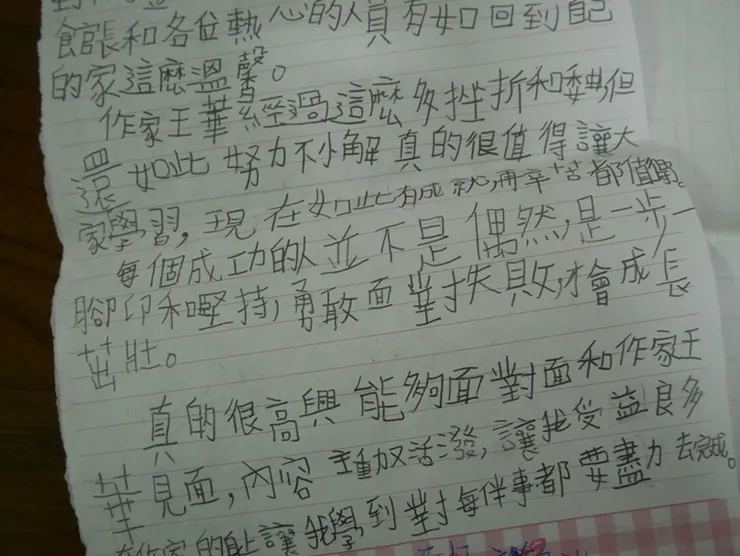 館長和各位熱心的人員有如回到自己
的家這麼溫馨。
作家王華經過這麼多挫折和委曲但
還如此努力不懈真的很值得讓大
家學習,現在如此有成就再辛苦都值得。
每個成功的人並不是偶然,是一步一
腳印和堅持,勇敢面對失敗,才會成長
茁壯。
真的很高興能夠面對面和作家王
華見面,內容活潑,讓我受益良多
作家的身上讓我學到對每件事都要盡力去完成。